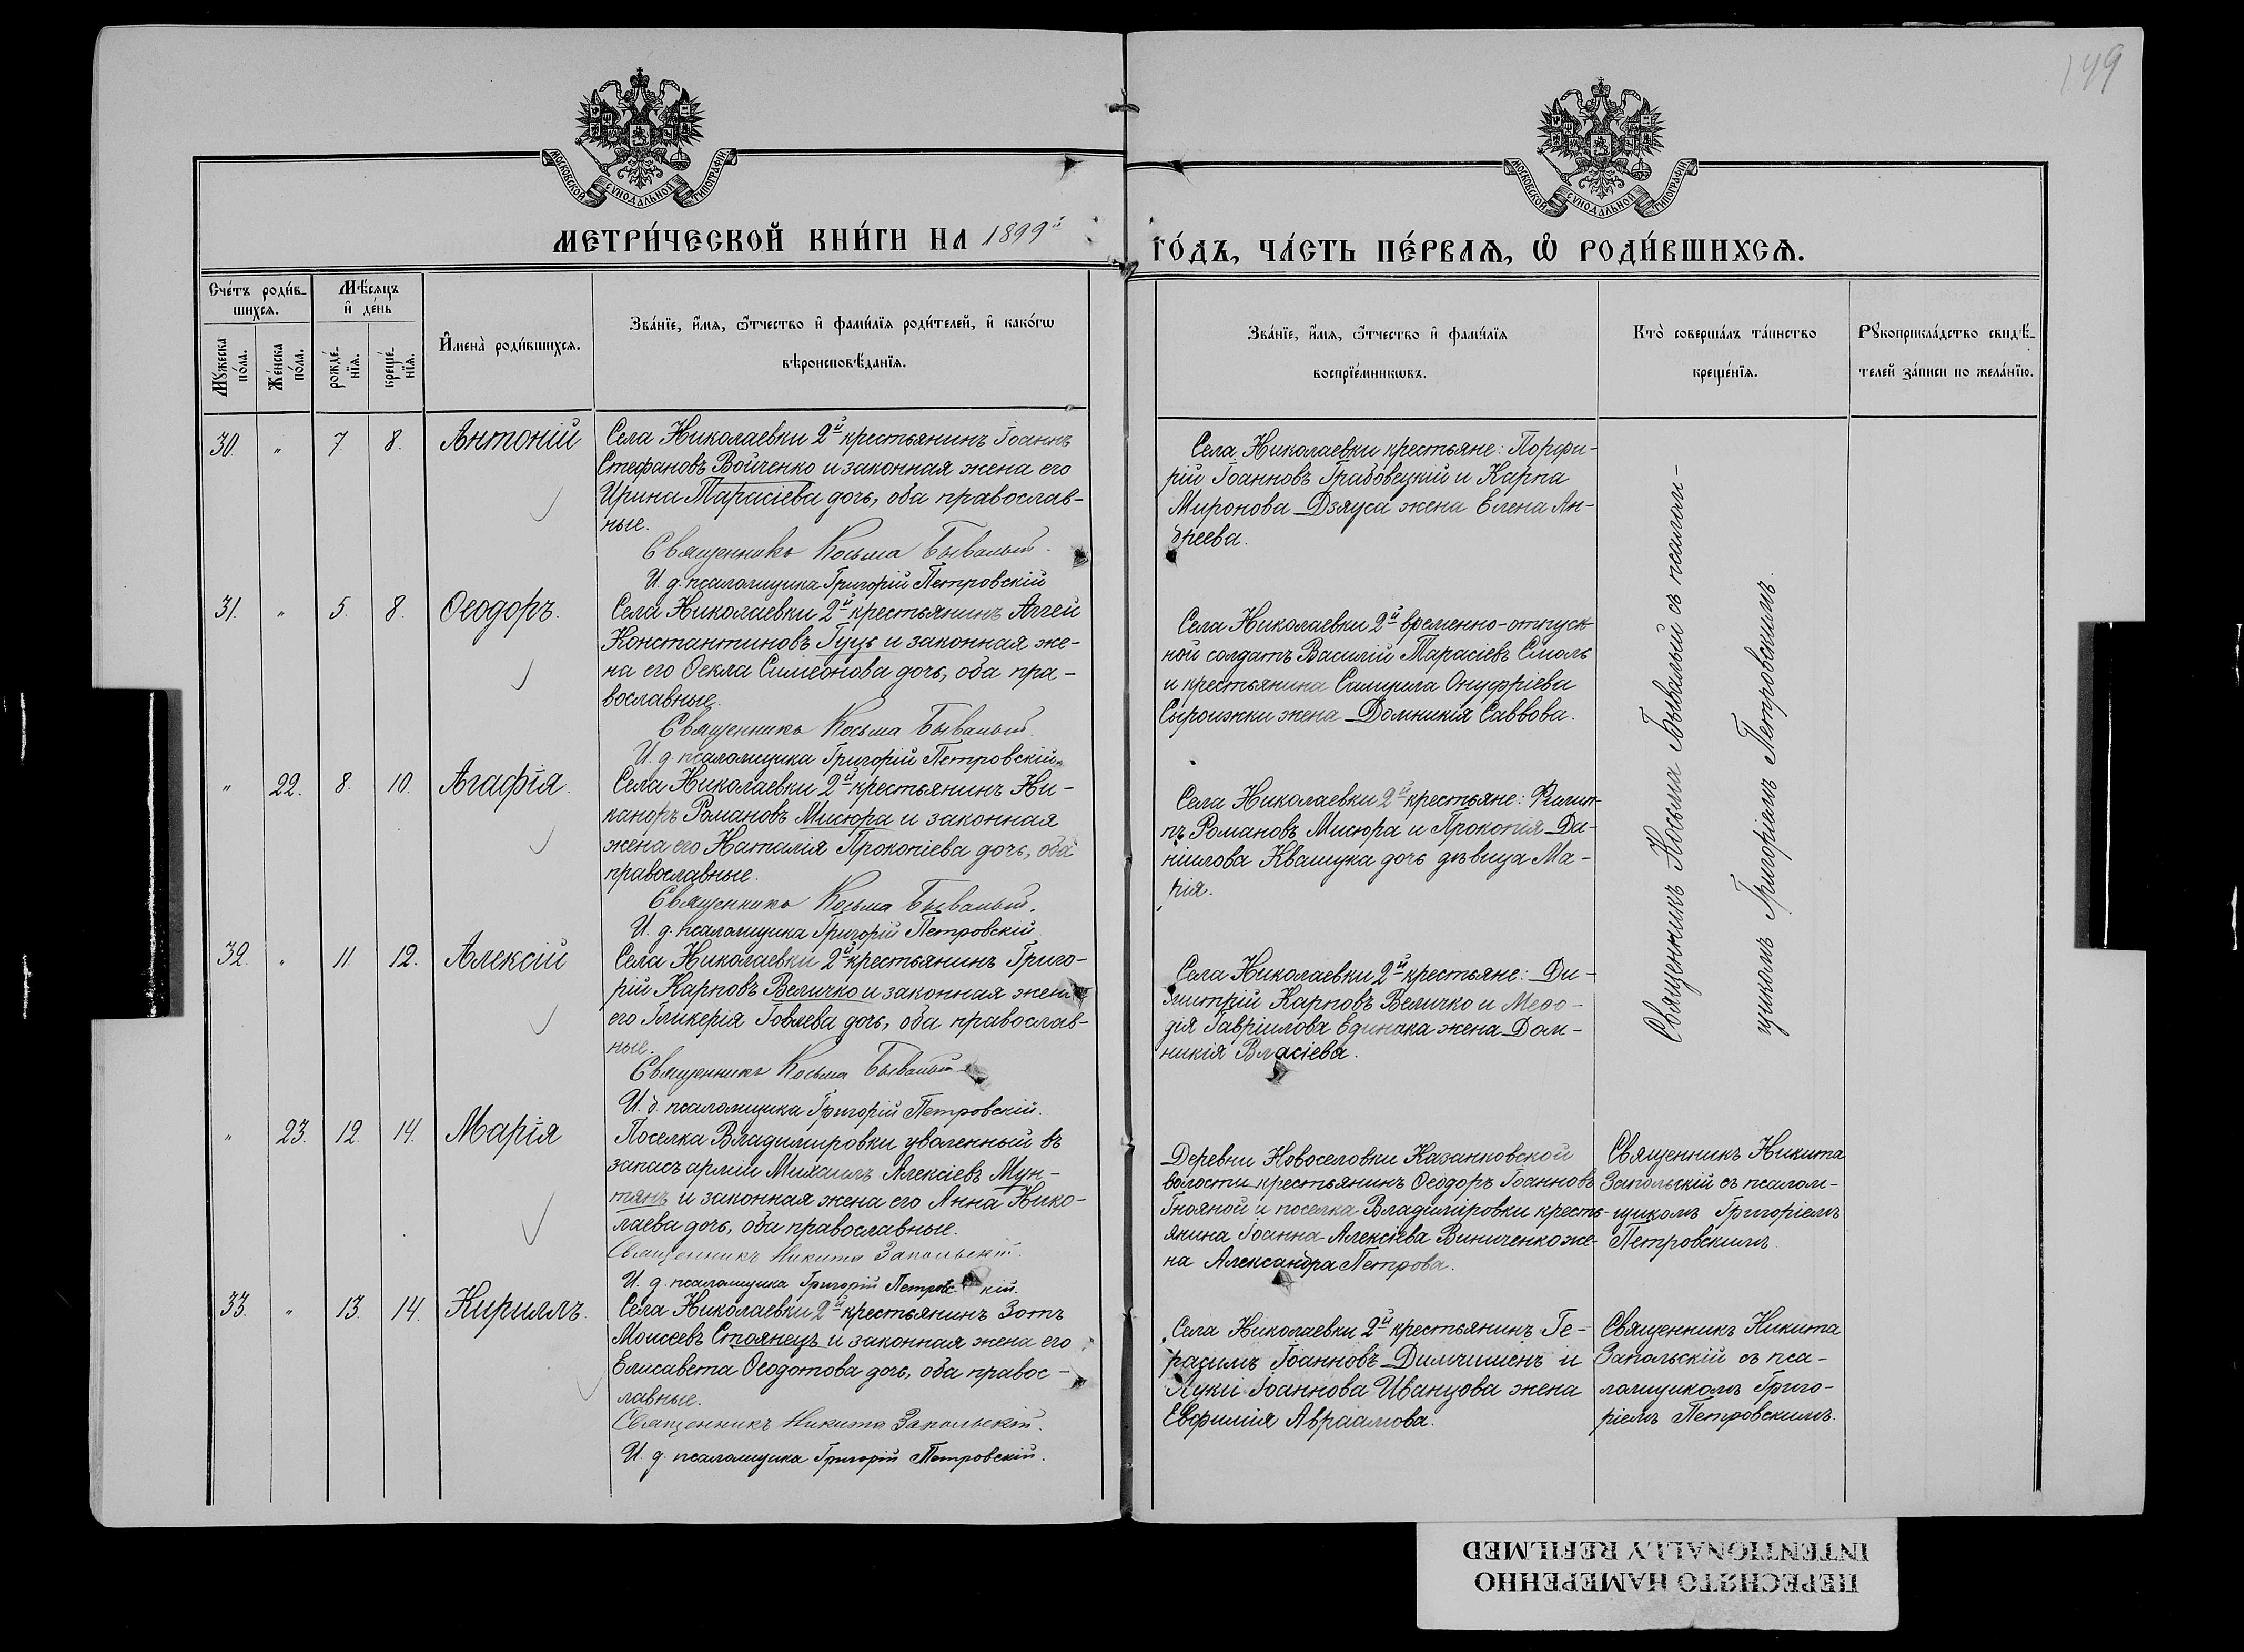 149
МОСКОВСКОЙ СУНОДАЛЬНОЙ ТИПОГРАФІИ
МОСКОВСКОЙ СУНОДАЛЬНОЙ ТИПОГРАФІИ
МЕТРИ́ЧЕСКОЙ КНИ́ГИ НА 1899й
ГО́ДЪ, ЧА́СТЬ ПЕ́РВАѦ, Ѽ РОДИ́ВШИХСѦ.
Сче́тъ роди́в-
шихсѧ.
Мꙋ́жеска по́ла.
Же́нска по́ла.
Мѣ́сѧцъ
и҆ де́нь
рожде́-
нїѧ.
креще́-
нїѧ.
И҆мена̀ роди́вшихсѧ.
Зва́нїе, и҆́мѧ, ѻ҆́тчество и҆ фами́лїѧ роди́телей, и҆ како́гѡ
вѣроисповѣ́данїѧ.
Зва́нїе, и҆́мѧ, ѻ҆́тчество и҆ фами́лїѧ
воспрїе́мникѡвъ.
Кто̀ соверша́лъ та́инство
креще́нїѧ.
Рꙋкоприкла́дство свидѣ́-
телей за́писи по жела́нїю.
30. " 7. 8. Антоній
Села Николаевки 2й крестьянинъ Іоаннъ
Стефановъ Войченко и законная жена его
Ирина Тарасіева дочь, оба православ-
ные.
Священникъ Косьма Бывалый.
И. д. псаломщика Григорій Петровскій
Села Николаевки крестьяне: Порфи-
рій Іоанновъ Грабовецкій и Карпа
Миронова Дзяуса жена Елена Ан-
дреева.
Священникъ Косьма Бывалый съ псалом-
щикомъ Григоріемъ Петровскимъ.
31. " 5. 8. Ѳеодоръ.
Села Николаевки 2й крестьянинъ Аггей
Константиновъ Гуцъ и законная же-
на его Ѳекла Симеонова дочь, оба пра-
вославные.
Священникъ Косьма Бывалый.
И. д. псаломщика Григорій Петровскій
Села Николаевки 2й временно-отпуск
ной солдатъ Василій Тарасіевъ Смоль
и крестьянина Самуила Онуфріева
Сыроижки жена Домникія Саввова.
" 22. 8. 10. Агафія.
Села Николаевки 2й крестьянинъ Ни-
каноръ Романовъ Мисюра и законная
жена его Наталія Прокопіева дочь, оба
православные.
Священникъ Косьма Бывалый.
И. д. псаломщика Григорій Петровскій
Села Николаевки 2й крестьяне: Филип-
пъ Романовъ Мисюра и Прокопія Да-
ніилова Квашука дочь дѣвица Ма-
рія.
32. " 11 12. Алексій
Села Николаевки 2й крестьянинъ Григо-
рій Карповъ Величко и законная жена
его Гликерія Іовлева дочь, оба православ-
ные.
Священникъ Косьма Бывалый
И. д. псаломщика Григорій Петровскій.
Села Николаевки 2й крестьяне: Ди-
митрій Карповъ Величко и Меѳо-
дія Гавріилова Единака жена Дом-
никія Власіева.
" 23. 12. 14. Марія
Поселка Владимировки уволенный въ
запасъ арміи Михаилъ Алексіевъ Мун-
тянъ и законная жена его Анна Нико-
лаева дочь, оба православные.
Священникъ Никита Запольскій.
И. д. псаломщика Григорій Петровскій.
Деревни Новоселовки Казанковской
волости крестьянинъ Ѳеодоръ Іоанновъ
Гнояной и поселка Владиміровки кресть-
янина Іоанна Алексіева Виниченко же-
на Александра Петрова.
Священникъ Никита
Запольскій съ псалом-
щикомъ Григоріемъ
Петровскимъ.
33. " 13. 14. Кириллъ.
Села Николаевки 2й крестьянинъ Зотъ
Моисеевъ Стоянецъ и законная жена его
Елисавета Ѳеодотова дочь, оба правос-
лавные.
Священникъ Никита Запольскій.
И. д. псаломщика Григорій Петровскій.
Села Николаевки 2й крестьянинъ Ге-
расимъ Іоанновъ Димчишенъ и
Луки Іоаннова Иванцова жена
Евфимія Авраамова.
Священникъ Никита
Запольскій съ пса-
ломщикомъ Григо-
ріемъ Петровскимъ.
ПЕРЕСНЯТО НАМЕРЕННО
INTENTIONALLY REFILMED